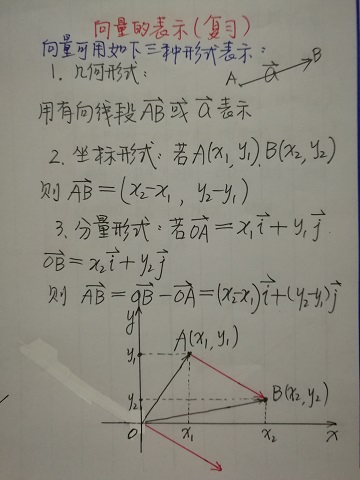 向量的表示(复习)
向量可用如下三种形式表示:
1. 几何形式:
A a⃗ B
用有向线段 AB⃗ 或 a⃗ 表示
2. 坐标形式: 若A(x₁, y₁), B(x₂, y₂)
则 AB⃗ = (x₂-x₁, y₂-y₁)
3. 分量形式: 若 OA⃗ = x₁i⃗ + y₁j⃗
OB⃗ = x₂i⃗ + y₂j⃗
则 AB⃗ = OB⃗ - OA⃗ = (x₂-x₁)i⃗ + (y₂-y₁)j⃗
y
A(x₁, y₁)
y₁
y₂
B(x₂, y₂)
O x₁ x₂ x